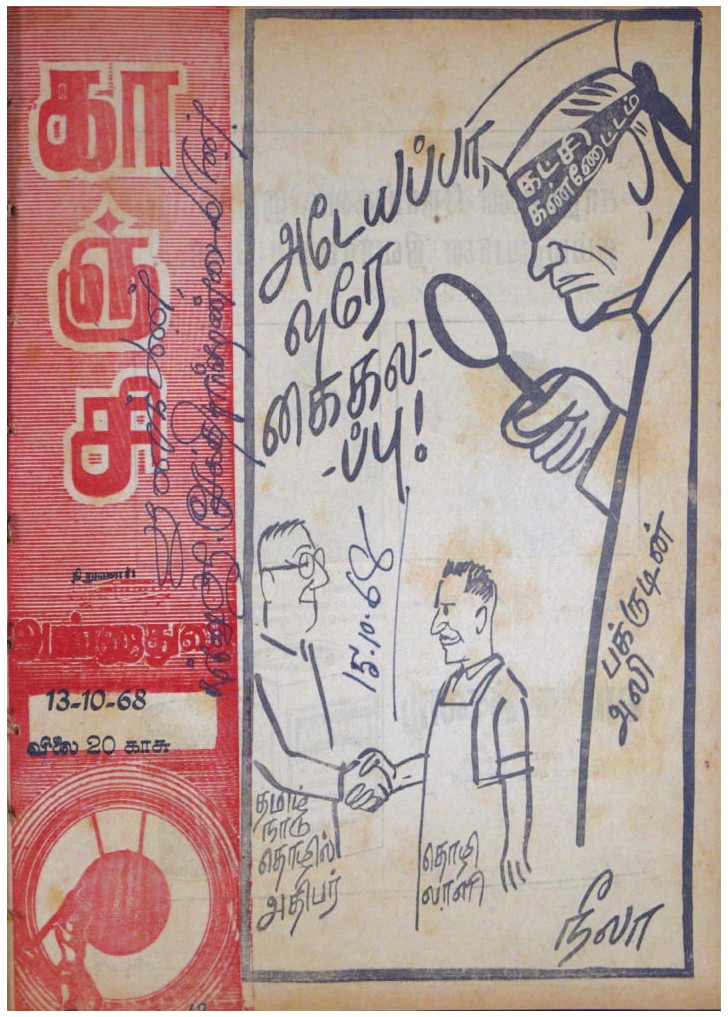 காஞ்சி
நிறுவனர்:
அண்ணாதுரை
13-10-68
விலை 20 காசு
கட்சி
கண்ணோட்டம்
அடேயப்பா,
ஒரே
கைகல-
-ப்பு!
15.10.68
பக்ருடீன்
அலி
தமிழ்
நாடு
தொழில்
அதிபர்
தொழி
லாளி
நீலா